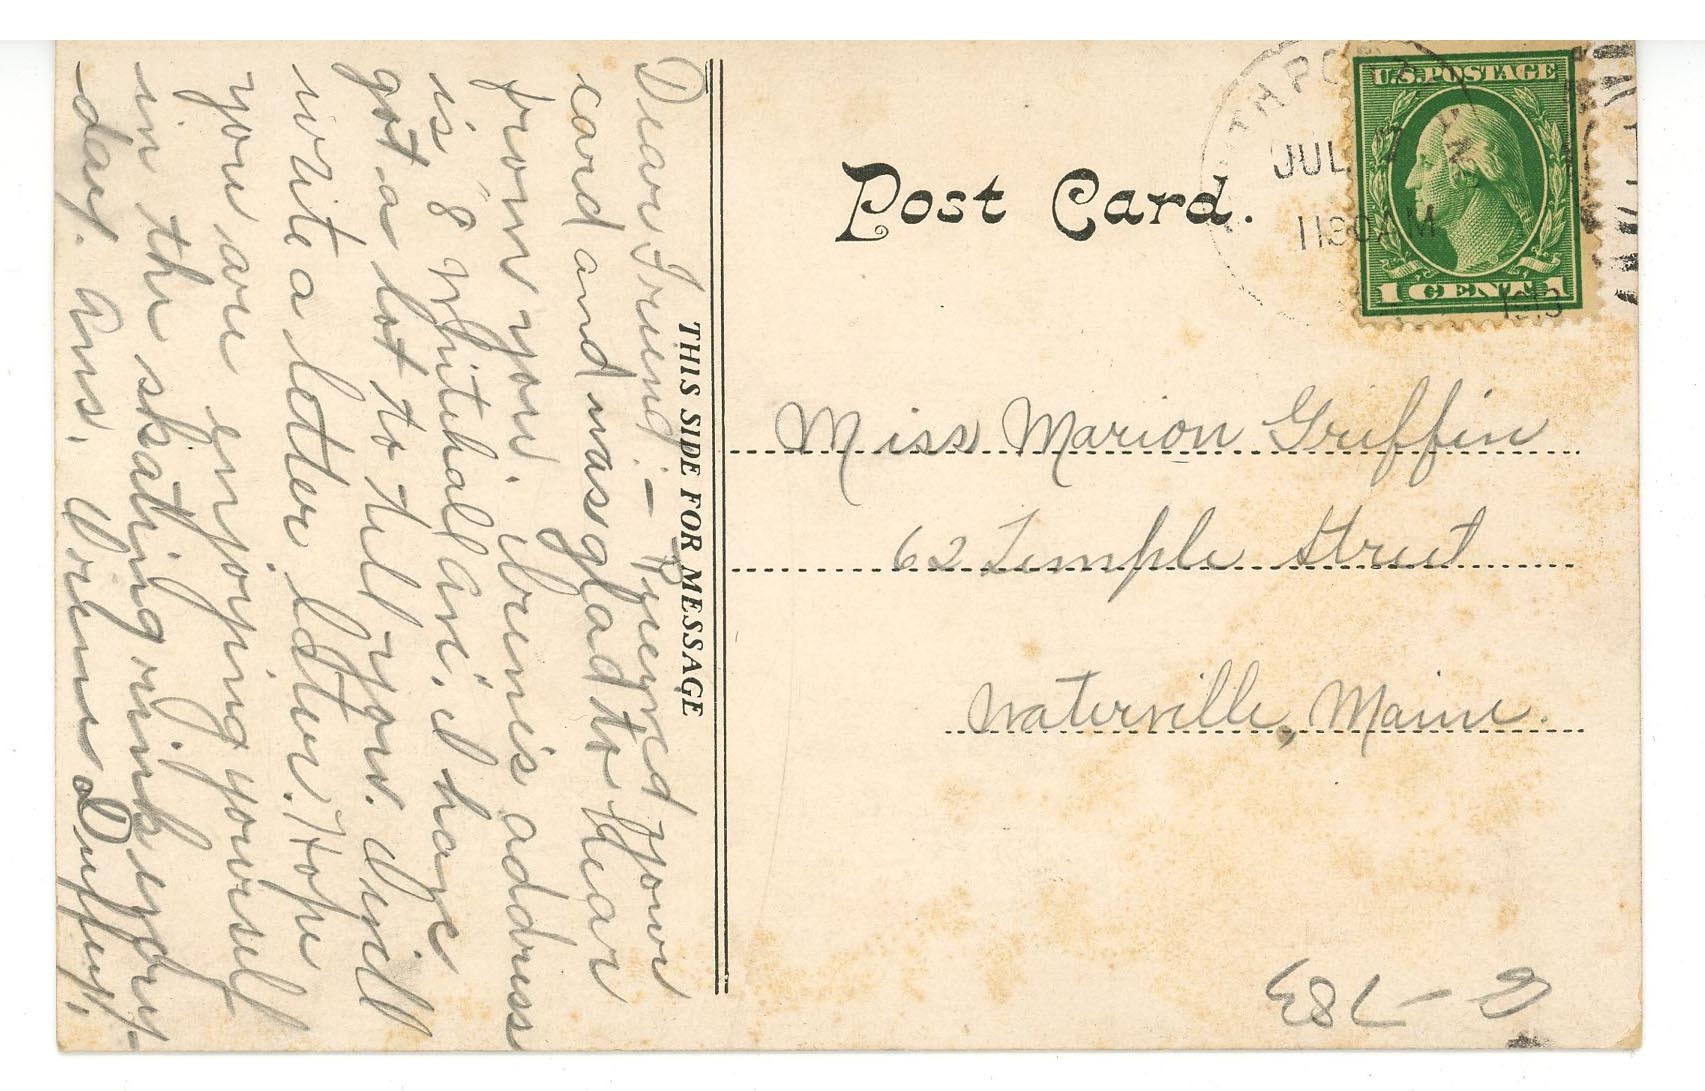 Post Card.
THIS SIDE FOR MESSAGE
U.S. POSTAGE
1 CENT 1
JUL 7
1130AM
1913
Miss Marion Griffin
62 Temple Street
Waterville, Maine.
Dear Friend:- Received your
card and was glad to hear
from you. address
is "8 Whitehall an." I have
got a lot to tell you. Will
write a letter later. Hope
you are enjoying yourself
in the skating rink every
day. Ans. Duffey.
G-783